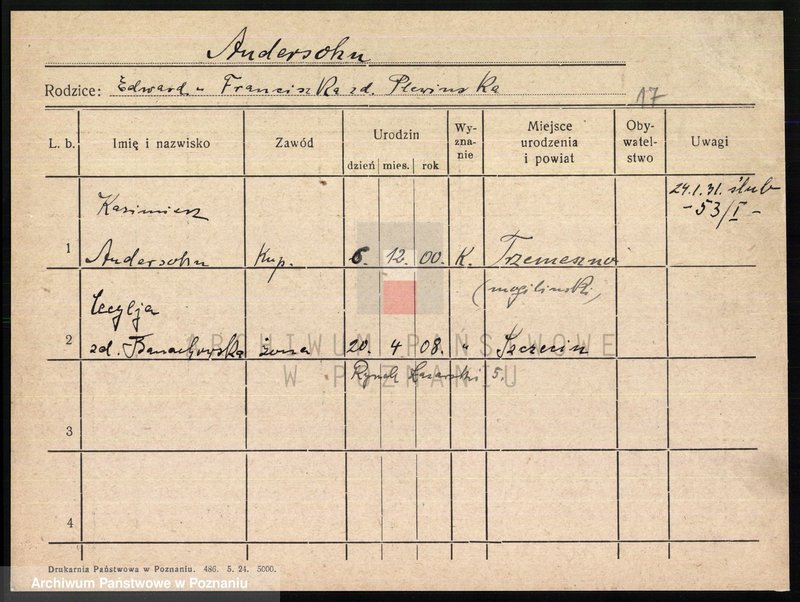 Andersohn
Rodzice: Edward u Franciszka zd. Plewinska
17
L. b. Imię i nazwisko Zawód Urodzin dzień mies. rok Wy-zna-nie Miejsce urodzenia i powiat Oby-watel-stwo Uwagi
24.1.31. ślub
-53/I-
Kazimierz
1 Andersohn Kup. 6. 12. 00. K. Trzemeszno
(mogilinski)
Cecylja
2 zd. żona 20. 4 08. " Szczecin
Rynek Łazarski 5.
3
4
ARCHIWUM PAŃSTWOWE
W POZNANIU
Drukarnia Państwowa w Poznaniu. 486. 5. 24. 5000.
Archiwum Państwowe w Poznaniu